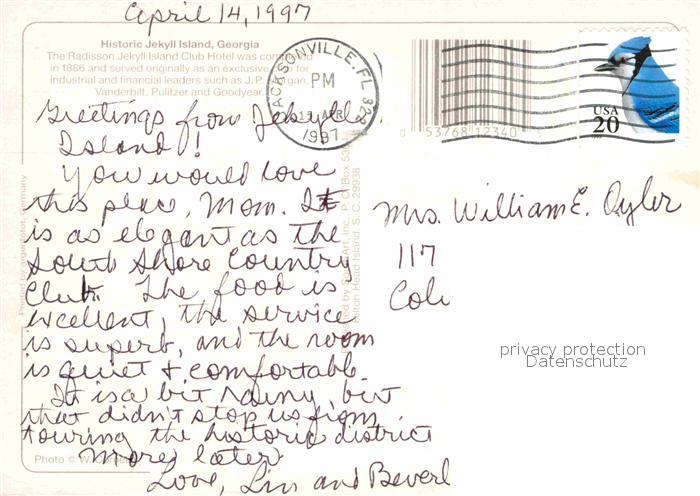 April 14, 1997
Historic Jekyll Island, Georgia
The Radisson Jekyll Island Club Hotel was
in 1886 and served originally as an exclusive for
industrial and financial leaders such as J.P.
Vanderbilt, Pulitzer and Goodyear.
JACKSONVILLE, FL 322
PM
15 APR
1997
53768 12340
USA
20
Greetings from Jekyll
Island!
You would love
this place, Mom. It
is as elegant as the
South Shore Country
Club. The food is
excellent, the service
is superb, and the room
is quiet + comfortable
It is a bit rainy, but
that didn't stop us from
touring the historic district
More later
Love, Lin and Beverl
Mrs. William E. Oyler
117
Colu
privacy protection
Datenschutz
Photo © W.
Hilton Head Island, S.C. 29938